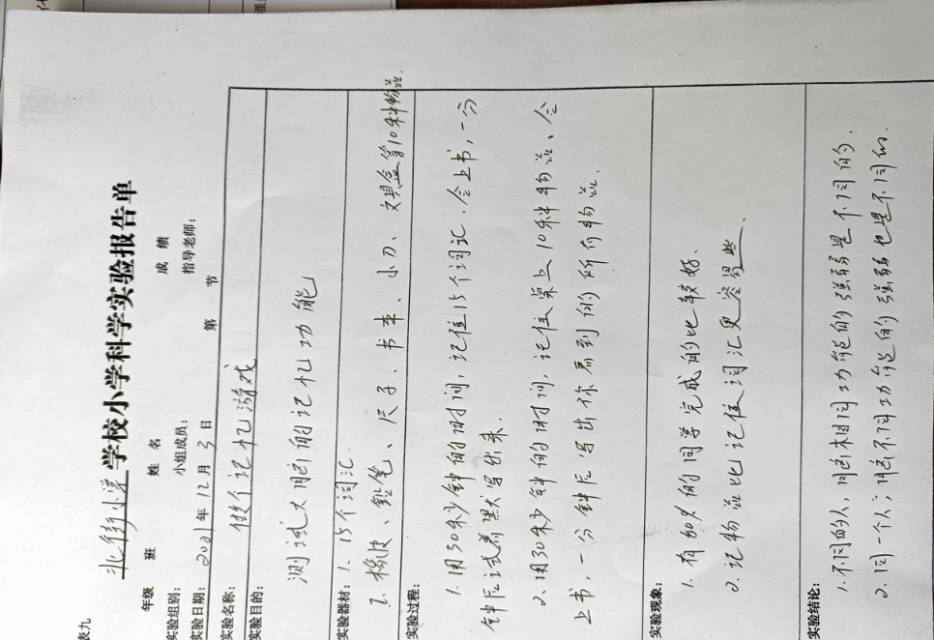 表九
北街小学学校小学科学实验报告单
年级 班 姓 名 成 绩
实验组别： 小组成员： 指导老师：
实验日期：2021年12月3日 第 节
实验名称： 做个记忆游戏
实验目的：
测试大脑的记忆功能
实验器材：1、15个词汇.
2、橡皮、铅笔、尺子、书本、小刀、文具盒等10种物品.
实验过程：
1、用30秒钟的时间，记住15个词汇.合上书，一分
钟后试着默写出来.
2、用30秒钟的时间，记住桌上10种物品、合
上书，一分钟后写出你看到的所有物品.
实验现象：
1、有80%的同学完成的比较好.
2、记物品比记住词汇更容易些
实验结论：
1、不同的人，大脑相同功能的强弱是不同的.
2、同一个人；大脑不同功能的强弱也是不同的.